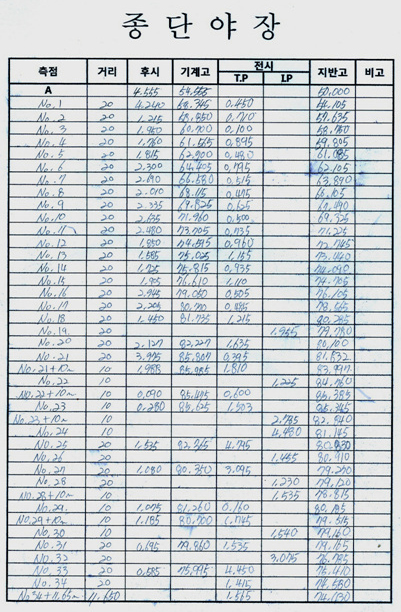 종 단 야 장
측점 거리 후시 기계고 전시 지반고 비고
T.P I.P
A 4.555 54.555 50.000
No.1 20 4.240 58.345 0.450 54.105
No.2 20 1.215 0.710
No.3 20 0.100
No.4 20 1.760 61.565 0.895 59.805
No.5 20 1.815 62.900 0.480 61.085
No.6 20 2.300 64.405 0.795 62.105
No.7 20 66.580 0.515 63.890
No.8 20 2.010 68.115 0.475 66.105
No.9 20 2.335 69.825 0.625
No.10 20 2.135 0.500 69.325
No.11 20 2.480 73.705 0.735 71.225
No.12 20 1.850 74.595 0.960 72.745
No.13 20 1.585 75.025 1.155 73.440
No.14 20 1.725 75.815 0.935 74.090
No.15 20 1.905 76.610 1.110 74.705
No.16 20 2.945 79.050 0.505 76.105
No.17 20 0.485 78.565
No.18 20 1.450 81.735 1.215 80.285
No.19 20 79.780
No.20 20 2.127 82.227 1.635 80.100
No.21 20 3.975 85.807 0.395 81.832
No.21+10m 10 1.988 85.985 1.810 83.997
No.22 10 1.225 84.760
No.22+10m 10 0.090 0.600 85.385
No.23 10 0.280 85.625
No.23+10m 10 2.785 82.840
No.24 10 4.480 81.145
No.25 20 1.535 4.795 80.830
No.26 20 1.455 80.910
No.27 20 1.080 80.350 3.095 79.270
No.28 20 1.230 79.120
No.28+10m 10 1.535 78.815
No.29 10 1.075 81.260 0.160
No.29+10m 10 1.185 80.700 1.745 79.515
No.30 10 1.540 79.160
No.31 20 0.695 79.860 1.535 79.165
No.32 20 3.075 76.785
No.33 20 0.585 75.995 4.450 75.410
No.34 20 1.415 74.580
No.34+11.65m 11.650 1.565